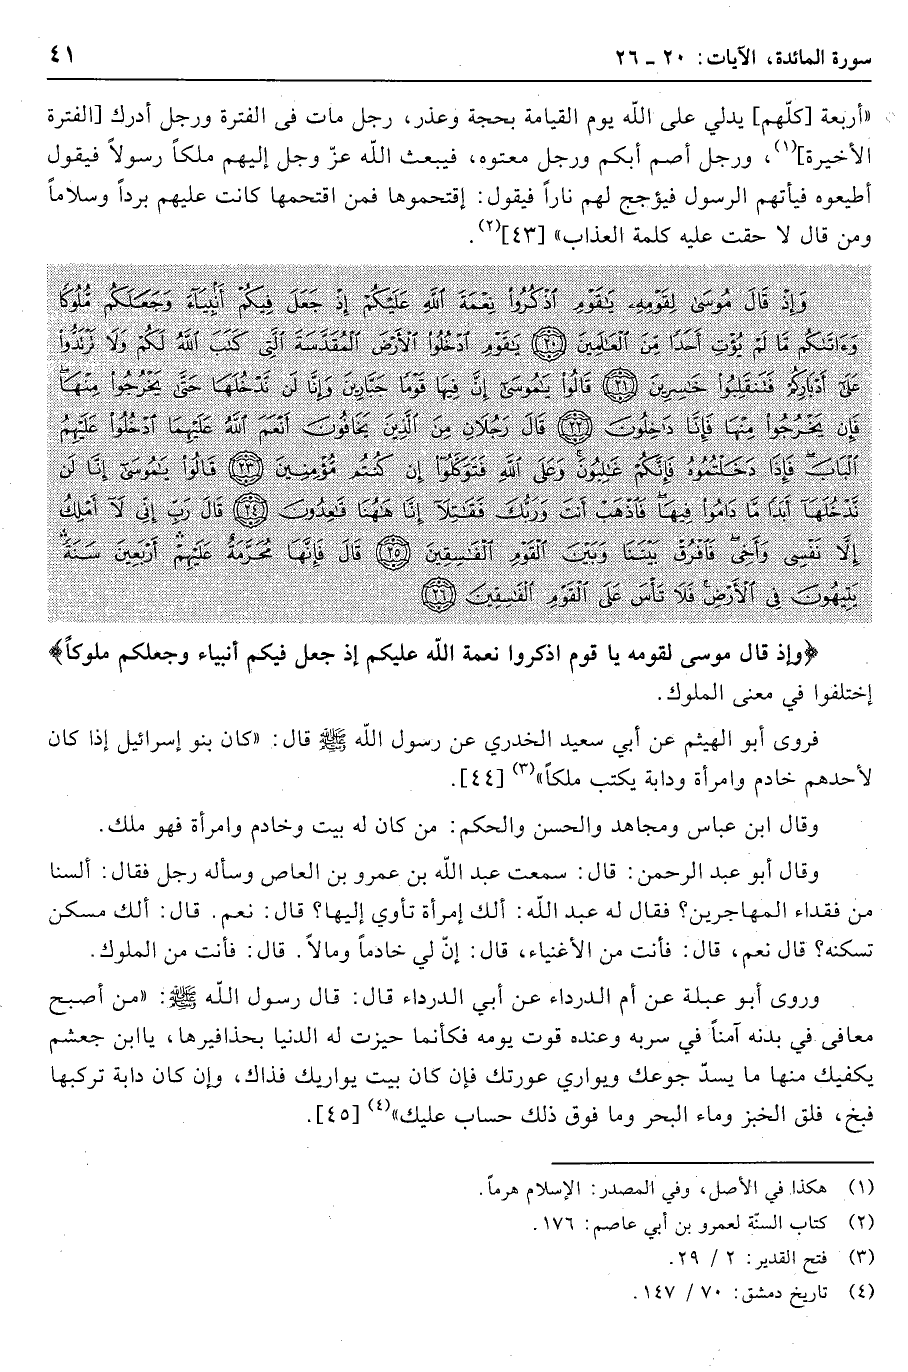 سورة المائدة، الآيات: ٢٠ ـ ٢٦
٤١
«أربعة [كلّهم] يدلي على الله يوم القيامة بحجة وعذر، رجل مات فى الفترة ورجل أدرك [الفترة
الأخيرة](١)، ورجل أصم أبكم ورجل معتوه، فيبعث الله عزّ وجل إليهم ملكاً رسولاً فيقول
أطيعوه فيأتهم الرسول فيؤجج لهم ناراً فيقول: إقتحموها فمن اقتحمها كانت عليهم برداً وسلاماً
ومن قال لا حقت عليه كلمة العذاب» [٤٣](٢).
وَإِذْ قَالَ مُوسَىٰ لِقَوْمِهِۦ يَٰقَوْمِ ٱذْكُرُوا۟ نِعْمَةَ ٱللَّهِ عَلَيْكُمْ إِذْ جَعَلَ فِيكُمْ أَنۢبِيَآءَ وَجَعَلَكُم مُّلُوكًا
وَءَاتَىٰكُم مَّا لَمْ يُؤْتِ أَحَدًا مِّنَ ٱلْعَٰلَمِينَ ٢٠ يَٰقَوْمِ ٱدْخُلُوا۟ ٱلْأَرْضَ ٱلْمُقَدَّسَةَ ٱلَّتِى كَتَبَ ٱللَّهُ لَكُمْ وَلَا تَرْتَدُّوا۟
عَلَىٰٓ أَدْبَارِكُمْ فَتَنقَلِبُوا۟ خَٰسِرِينَ ٢١ قَالُوا۟ يَٰمُوسَىٰٓ إِنَّ فِيهَا قَوْمًا جَبَّارِينَ وَإِنَّا لَن نَّدْخُلَهَا حَتَّىٰ يَخْرُجُوا۟ مِنْهَا
فَإِن يَخْرُجُوا۟ مِنْهَا فَإِنَّا دَٰخِلُونَ ٢٢ قَالَ رَجُلَانِ مِنَ ٱلَّذِينَ يَخَافُونَ أَنْعَمَ ٱللَّهُ عَلَيْهِمَا ٱدْخُلُوا۟ عَلَيْهِمُ
ٱلْبَابَ فَإِذَا دَخَلْتُمُوهُ فَإِنَّكُمْ غَٰلِبُونَ وَعَلَى ٱللَّهِ فَتَوَكَّلُوٓا۟ إِن كُنتُم مُّؤْمِنِينَ ٢٣ قَالُوا۟ يَٰمُوسَىٰٓ إِنَّا لَن
نَّدْخُلَهَآ أَبَدًا مَّا دَامُوا۟ فِيهَا فَٱذْهَبْ أَنتَ وَرَبُّكَ فَقَٰتِلَآ إِنَّا هَٰهُنَا قَٰعِدُونَ ٢٤ قَالَ رَبِّ إِنِّى لَآ أَمْلِكُ
إِلَّا نَفْسِى وَأَخِى فَٱفْرُقْ بَيْنَنَا وَبَيْنَ ٱلْقَوْمِ ٱلْفَٰسِقِينَ ٢٥ قَالَ فَإِنَّهَا مُحَرَّمَةٌ عَلَيْهِمْ أَرْبَعِينَ سَنَةً
يَتِيهُونَ فِى ٱلْأَرْضِ فَلَا تَأْسَ عَلَى ٱلْقَوْمِ ٱلْفَٰسِقِينَ ٢٦
﴿وإذ قال موسى لقومه يا قوم اذكروا نعمة الله عليكم إذ جعل فيكم أنبياء وجعلكم ملوكاً﴾
إختلفوا في معنى الملوك.
فروى أبو الهيثم عن أبي سعيد الخدري عن رسول الله ﷺ قال: «كان بنو إسرائيل إذا كان
لأحدهم خادم وامرأة ودابة يكتب ملكاً»(٣) [٤٤].
وقال ابن عباس ومجاهد والحسن والحكم: من كان له بيت وخادم وامرأة فهو ملك.
وقال أبو عبد الرحمن: قال: سمعت عبد الله بن عمرو بن العاص وسأله رجل فقال: ألسنا
من فقداء المهاجرين؟ فقال له عبد الله: ألك إمرأة تأوي إليها؟ قال: نعم. قال: ألك مسكن
تسكنه؟ قال نعم، قال: فأنت من الأغنياء، قال: إنّ لي خادماً ومالاً. قال: فأنت من الملوك.
وروى أبو عبلة عن أم الدرداء عن أبي الدرداء قال: قال رسول الله ﷺ: «من أصبح
معافى في بدنه آمناً في سربه وعنده قوت يومه فكأنما حيزت له الدنيا بحذافيرها، ياابن جعشم
يكفيك منها ما يسدّ جوعك ويواري عورتك فإن كان بيت يواريك فذاك، وإن كان دابة تركبها
فبخ، فلق الخبز وماء البحر وما فوق ذلك حساب عليك»(٤) [٤٥].
(١) هكذا في الأصل، وفي المصدر: الإسلام هرماً.
(٢) كتاب السنّة لعمرو بن أبي عاصم: ١٧٦.
(٣) فتح القدير: ٢ / ٢٩.
(٤) تاريخ دمشق: ٧٠ / ١٤٧.